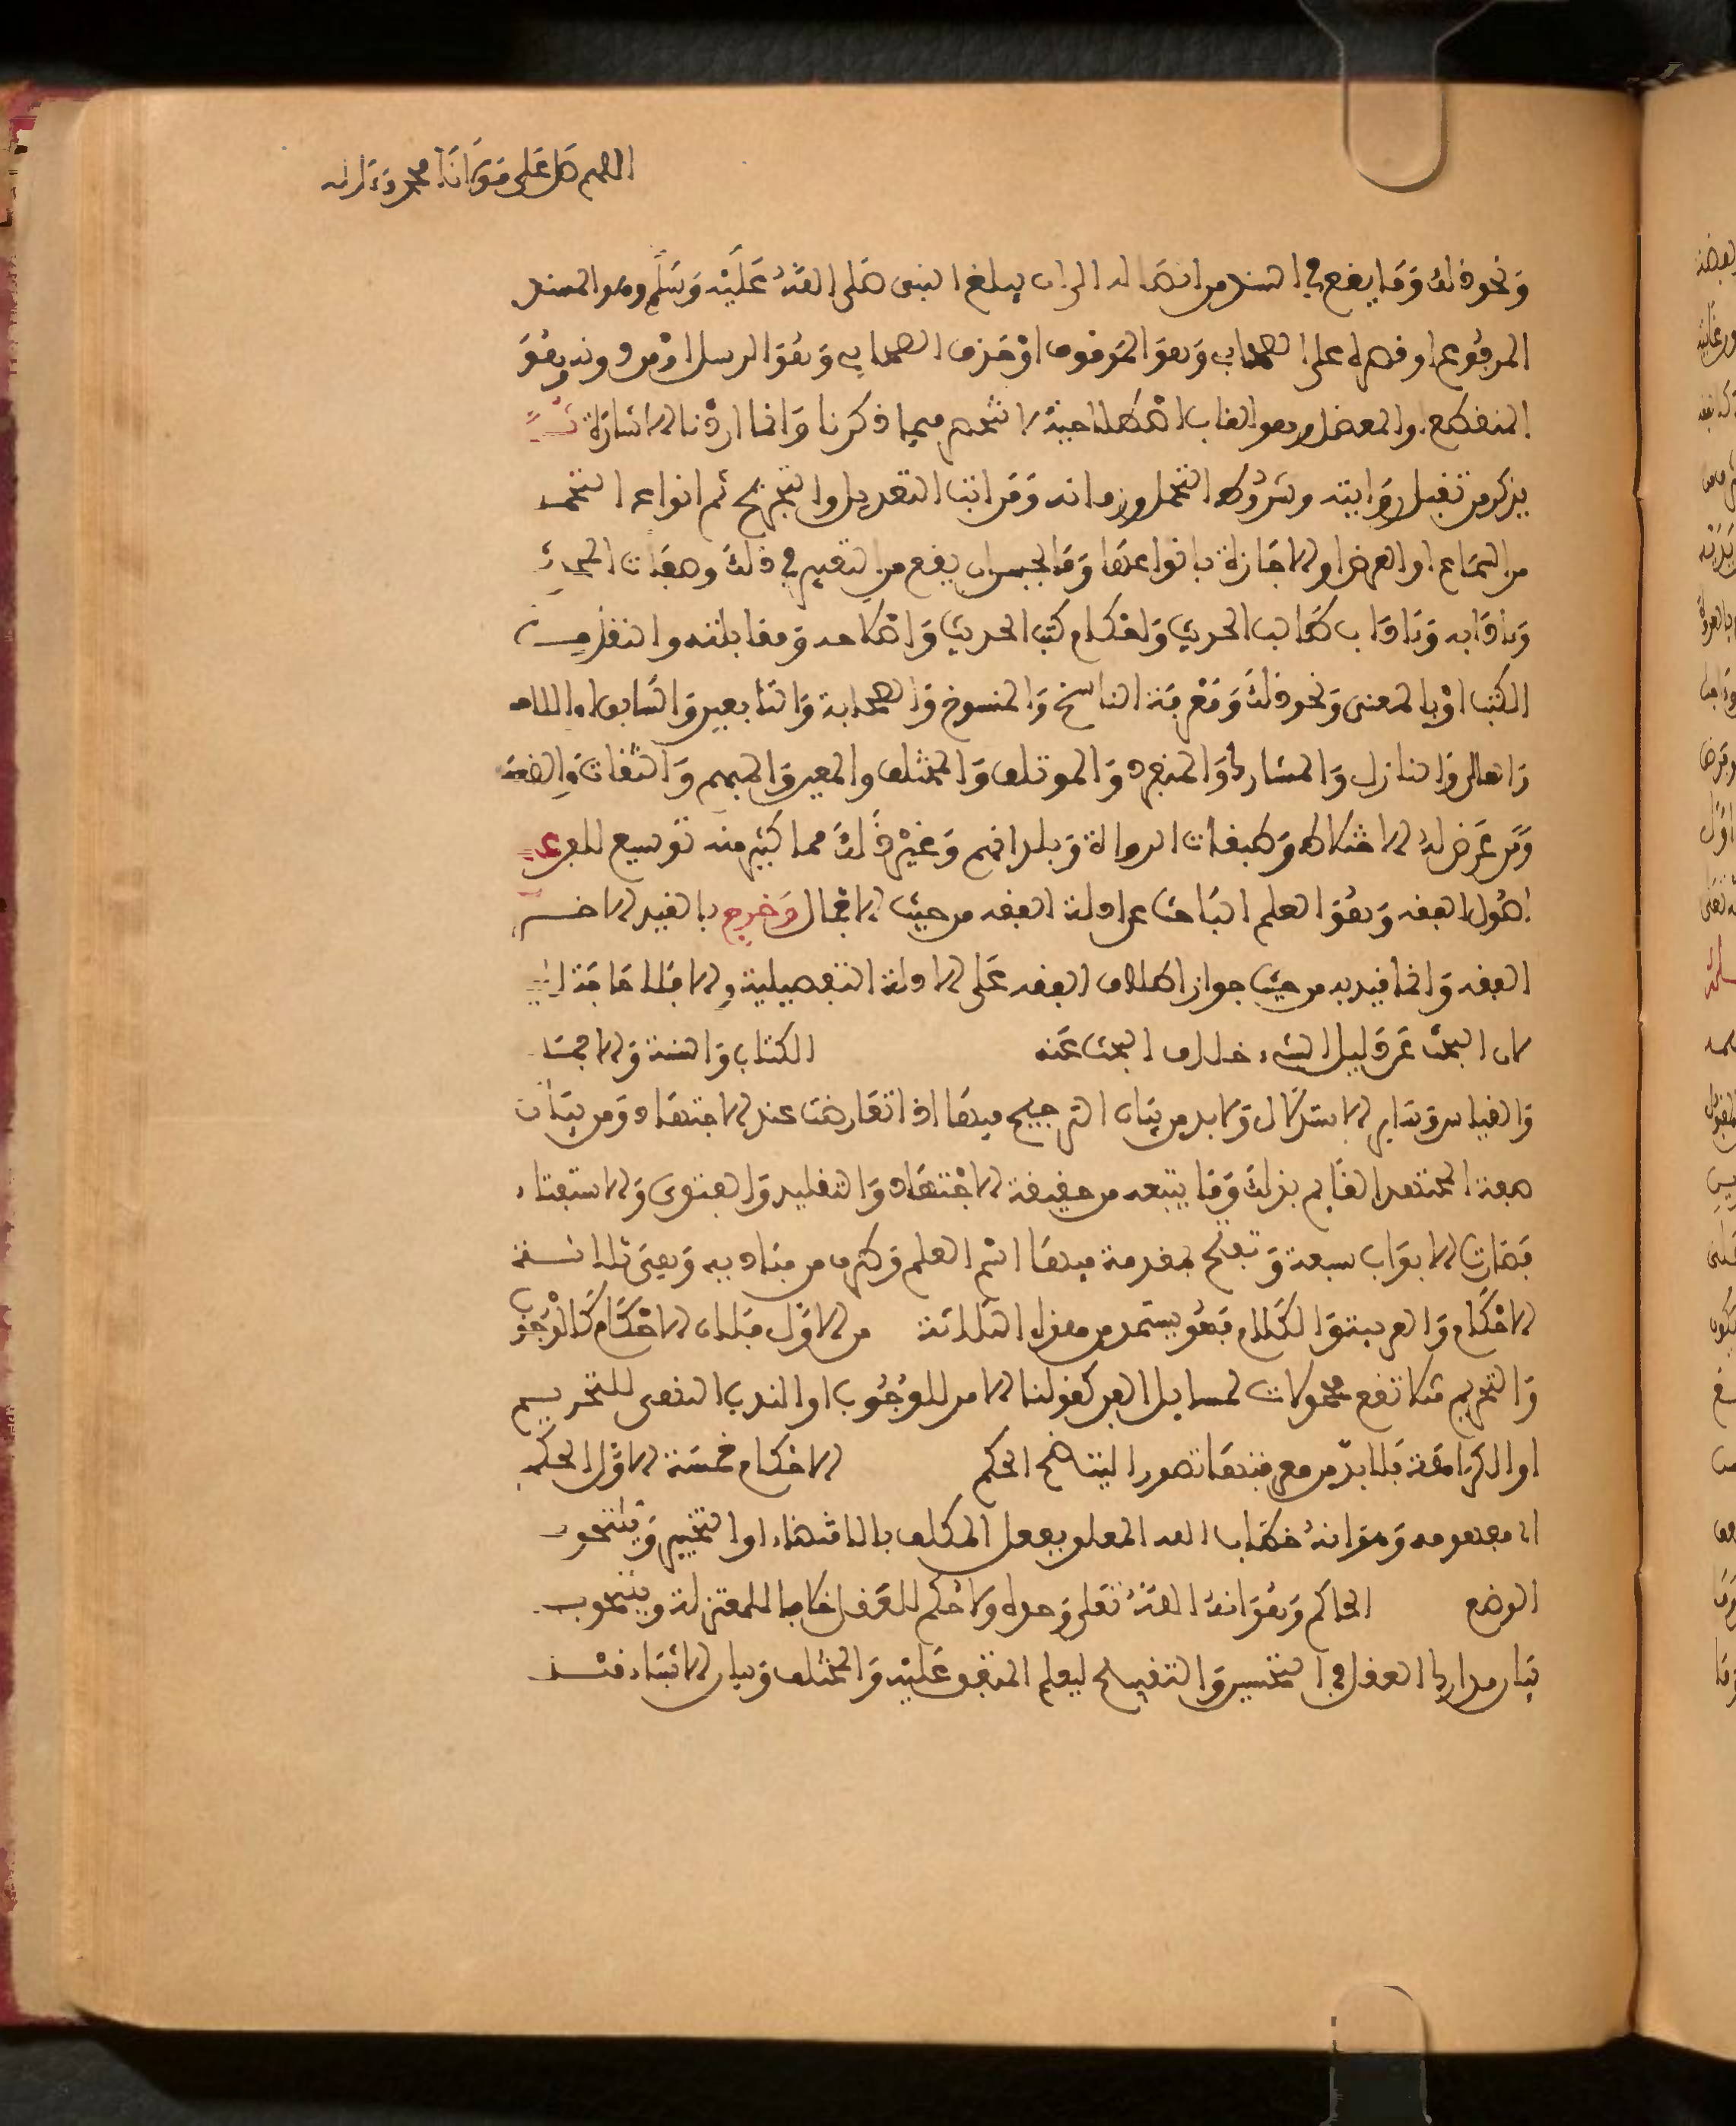 اللهم صل على مولانا محمد وءاله
ونحو ذلك وما يقع في السند من اتصاله الى ان يبلغ النبي صلى الله عليه وسلم وهو المسند
المرفوع او قصره على الصحابي وهو الموقوف او حذف الصحابي وهو المرسل او من دونه وهو
المنقطع او المعضل وهو القاب اصطلاحية لا تنحصر فيما ذكرنا وانما اردنا الاشارة
يذكر من تقبل روايته وشروط التحمل وزمانه ومراتب التعديل والتجريح ثم انواع التحمـ
من السماع او العرض او الاجازة بانواعها وما يجب ان يقع من التعبير في ذلك وصفات
وءادابه وءاداب طالب الحديث واحكام كتب الحديث واصلاحه ومقابلته والنقل من
الكتب او بالمعنى ونحو ذلك ومعرفة الناسخ والمنسوخ والصحابة والتابعين والسابق واللاحق
والعالي والنازل والمشارك والمنفرد والموتلف والمختلف والمعين والمبهم والثقات والضعفـ
ومن عرض له الاختلاط وطبقات الرواة وبلدانهم وغير ذلك مما كثير منه توسيع للفرع
اصول الفقه وهو العلم الباحث عن ادلة الفقه من حيث الاجمال وخرج بالقيد الاخير
الفقه وانما قيد به من حيث جواز اطلاق الفقه على الادلة التفصيلية والا فلا حاجة
لان البحث عن دليل الشيء خلاف البحث عنه الكتاب والسنة والاجمـ
والقياس وساير الاستدلال ولا بد من بيان الترجيح فيها اذا تعارضت عند الاجتهاد ومن بيان
صفة المجتهد القايم بذلك وما يتبعه من حقيقة الاجتهاد والتقليد والفتوى والاستفتاء
فصارت الابواب سبعة وتفتتح بمقدمة فيها اسم العلم وطرف من مباديه وهي ثلاثـة
الاحكام والعربية والكلام فهو يستمد من هذه الثلاثة من الاول فلان الاحكام كالوجوب
والتحريم مثلا تقع محمولات لمسايل الفن كقولنا الامر للوجوب او الندب النهي للتحريم
او الكراهة فلا بد من معرفتها تصورا ليتضح الحكم الاحكام خمسة الاول الحكم
اي مفهومه وهو انه خطاب الله المتعلق بفعل المكلف بالاقتضاء او التخيير
الوضع الحاكم وهو انه الله تعلى وحده ولا حكم للعقل خلافا للمعتزلة
بيان مدارك العقل في التحسين والتقبيح ليعلم المتفق عليه والمختلف وبيان الاشياء قبـ